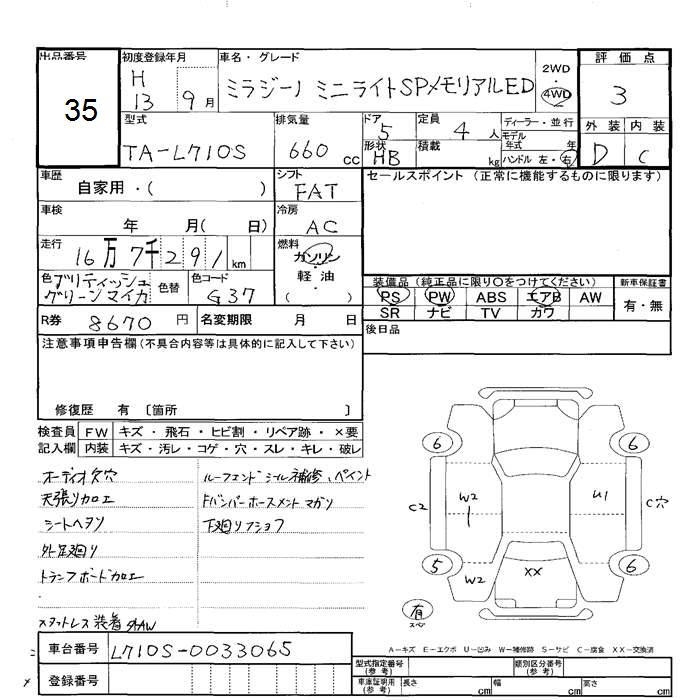 出品番号
35
初度登録年月
H
13 9月
車名・グレード
ミラジーノ ミニライトSPメモリアルED
2WD
4WD
評価点
3
外装 内装
D C
型式
TA-L710S
排気量
660 cc
ドア
5
定員
4 人
形状
HB
積載
kg
ディーラー・並行
モデル
年式 年
ハンドル 左・右
車歴
自家用・( )
シフト
FAT
セールスポイント (正常に機能するものに限ります)
車検
年 月( 日)
冷房
AC
走行
16万7千291km
燃料
ガソリン
軽・油
( )
色 ブリティッシュ
グリーンマイカ
色替
色コード
G37
装備品 (純正品に限り○をつけてください)
新車保証書
PS PW ABS エアB AW
SR ナビ TV カワ
有・無
R券 8670 円
名変期限 月 日
後日品
注意事項申告欄(不具合内容等は具体的に記入して下さい)
修復歴 有 〔箇所 〕
検査員
記入欄
FW キズ・飛石・ヒビ割・リペア跡・×要
内装 キズ・汚レ・コゲ・穴・スレ・キレ・破レ
オーディオ欠穴
天張り加工
シートヘタリ
外足廻り
トランクボード加工
ルーフエンドシール補修、ペイント
下廻り
6 6
C2 W2 U1 C穴
5 W2 XX 6
有
スペア
A-キズ E-エクボ U-凹み W-補修跡 S-サビ C-腐食 XX-交換済
車台番号 L710S-0033065
登録番号
型式指定番号
(参考)
類別区分番号
(参考)
車庫証明用
(参考)
長さ cm 幅 cm 高さ cm